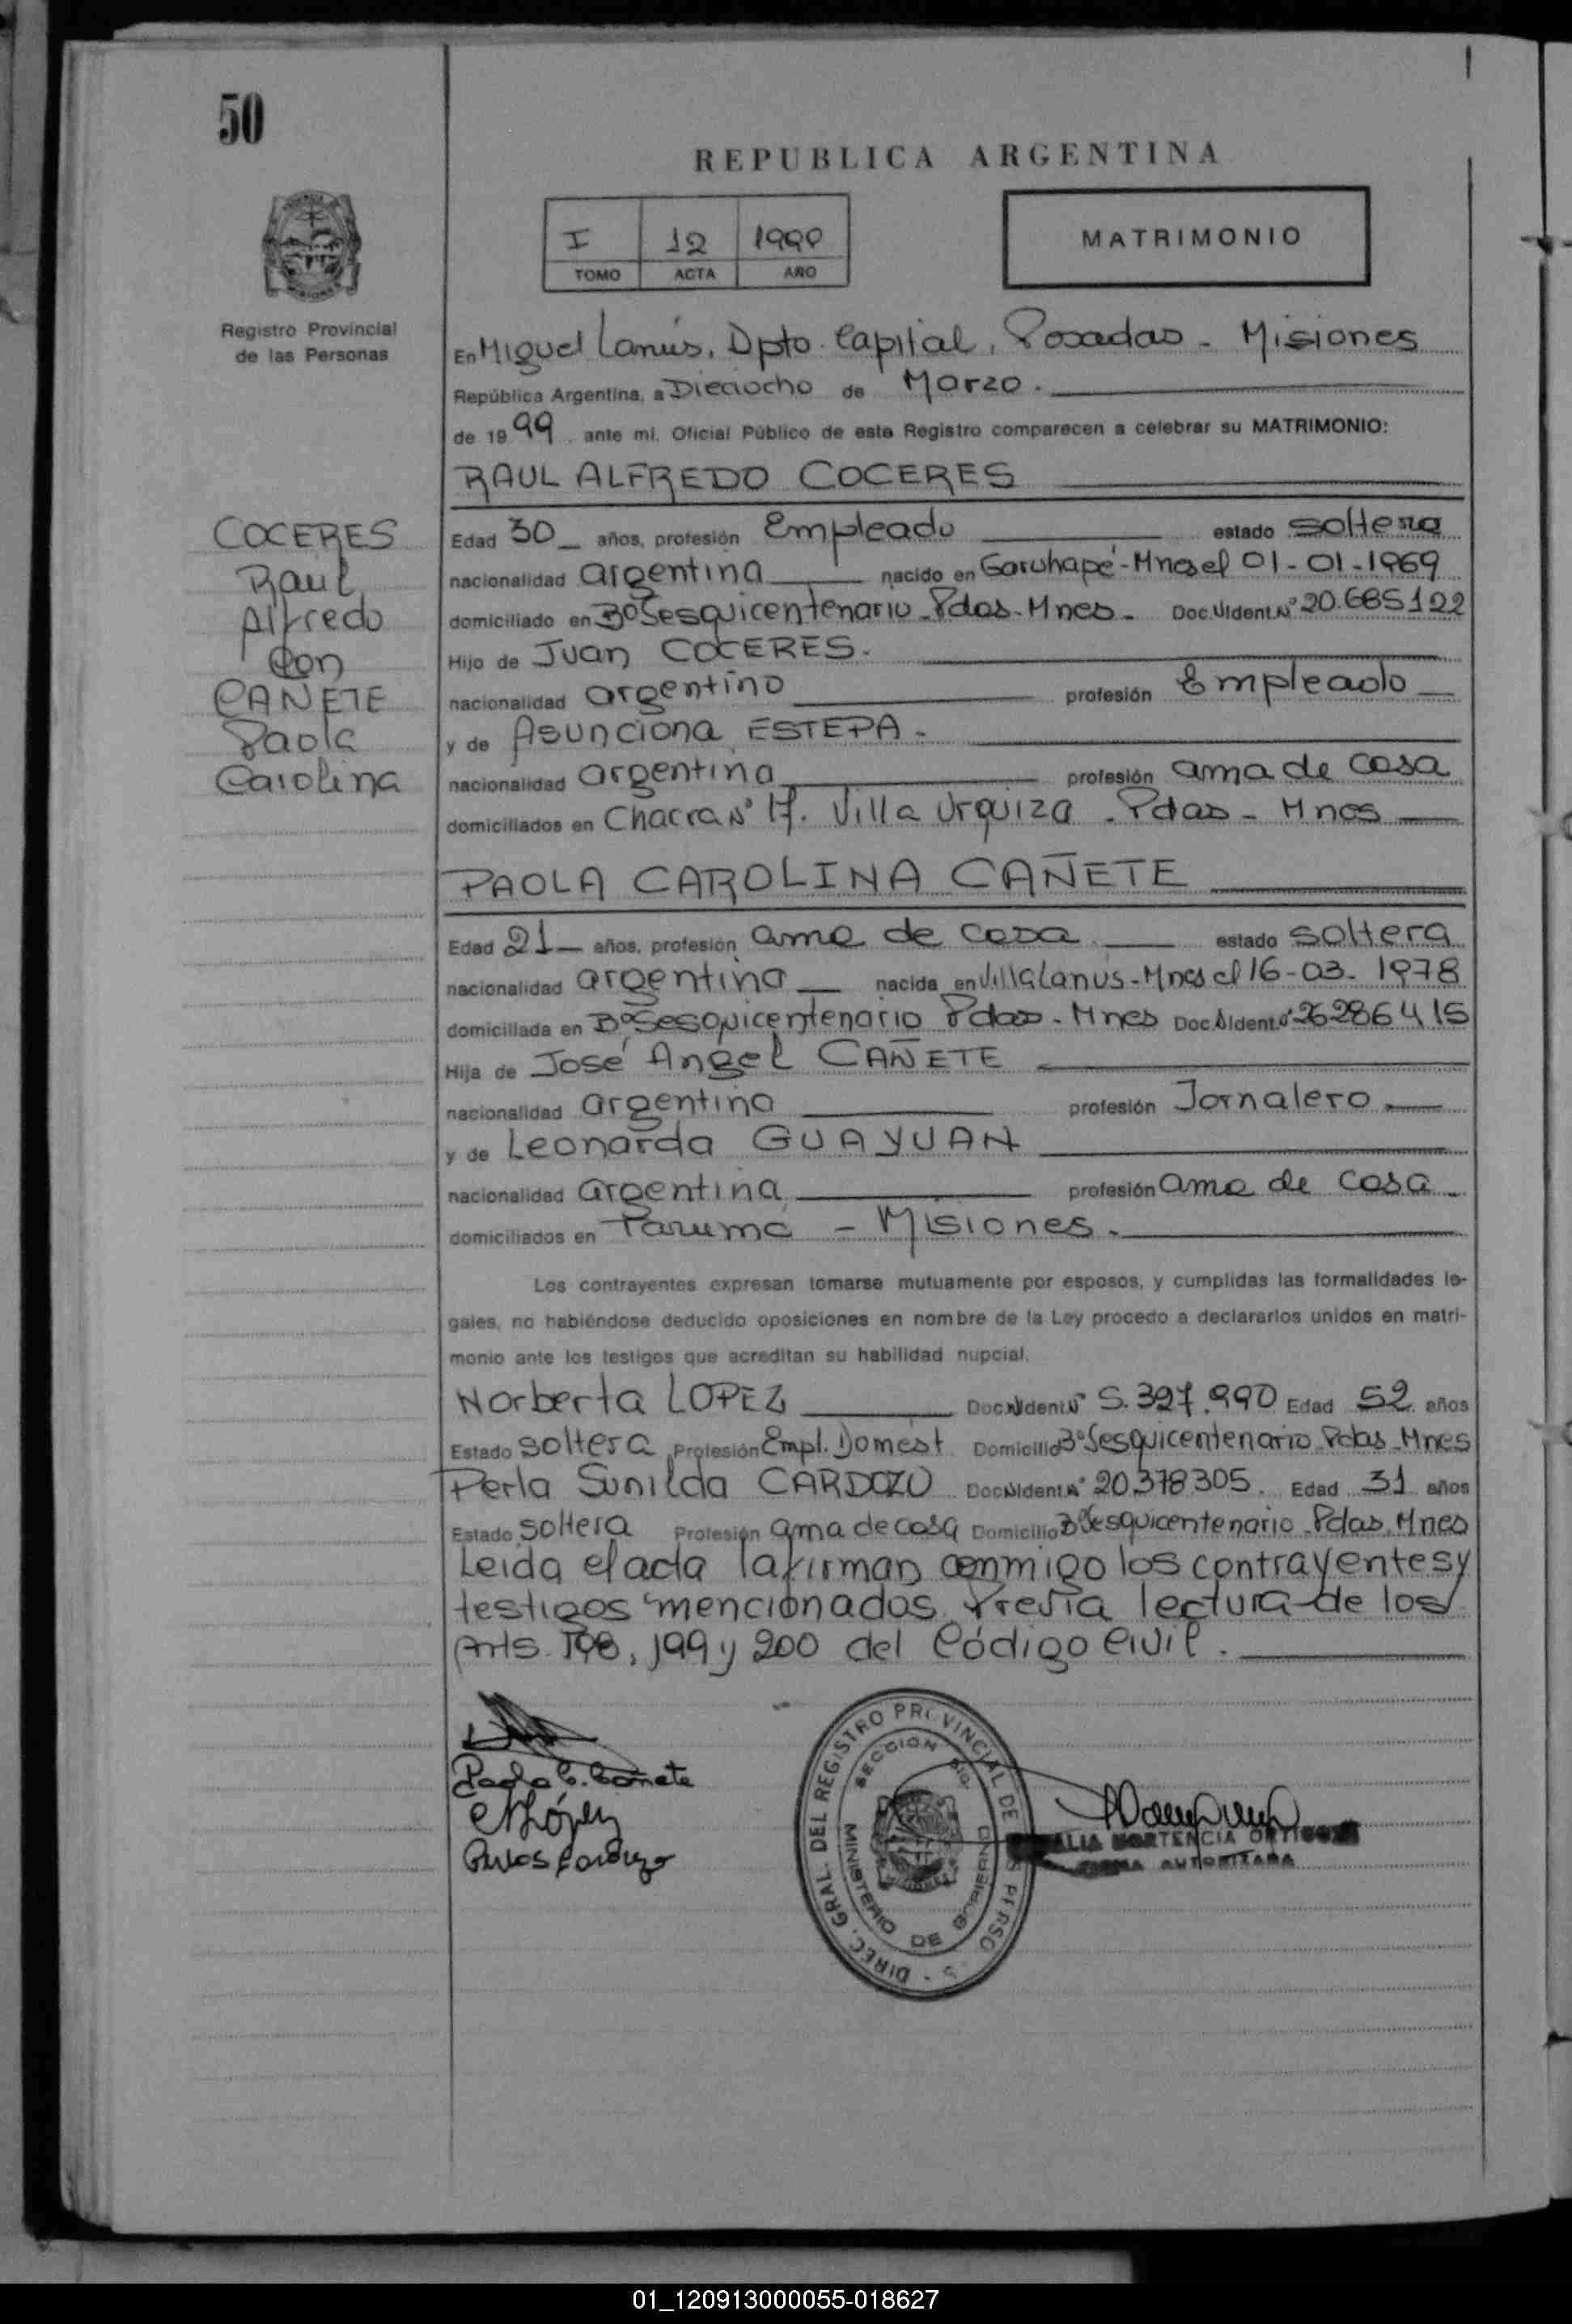 50
REPUBLICA ARGENTINA
I 12 1999
TOMO ACTA AÑO
MATRIMONIO
Registro Provincial
de las Personas
En Miguel Lanús, Dpto. Capital, Posadas - Misiones
República Argentina, a Dieciocho de Marzo.
de 1999, ante mi, Oficial Público de este Registro comparecen a celebrar su MATRIMONIO:
RAUL ALFREDO COCERES
COCERES
Raúl
Alfredo
Con
CAÑETE
Paola
Carolina
Edad 30 años, profesión Empleado estado soltero
nacionalidad argentina nacido en Garuhapé-Mnes el 01-01-1969
domiciliado en Bº Sesquicentenario-Pdas-Mnes- Doc. Ident. Nº 20.685122
Hijo de Juan COCERES.
nacionalidad argentino profesión Empleado
y de Asunciona ESTEPA -
nacionalidad argentina profesión ama de casa
domiciliados en Chacra Nº 17. Villa Urquiza - Pdas - Mnes
PAOLA CAROLINA CAÑETE
Edad 21 años, profesión ama de casa estado soltera
nacionalidad argentina nacida en Villa Lanus-Mnes el 16-03-1978
domiciliada en Bº Sesquicentenario Pdas-Mnes Doc. Ident. Nº 26286415
Hija de José Angel CAÑETE
nacionalidad argentina profesión Jornalero
y de Leonarda GUAYUAN
nacionalidad argentina profesión ama de casa
domiciliados en - Misiones.
Los contrayentes expresan tomarse mutuamente por esposos, y cumplidas las formalidades le-
gales, no habiéndose deducido oposiciones en nombre de la Ley procedo a declararlos unidos en matri-
monio ante los testigos que acreditan su habilidad nupcial.
Norberta LOPEZ Doc. Ident. Nº 5.397.990 Edad 52 años
Estado soltera Profesión Empl. Domést Domicilio Bº Sesquicentenario-Pdas-Mnes
Perla Sunilda CARDOZO Doc. Ident. Nº 20378305. Edad 31 años
Estado soltera Profesión ama de casa Domicilio Bº Sesquicentenario-Pdas.Mnes
Leida el acta la firman conmigo los contrayentes y
testigos mencionados. Previa lectura de los
Arts. 198, 199 y 200 del Código Civil.
Paola C. Cañete
NLópez
DIREC. GRAL. DEL REGISTRO PROVINCIAL DE
SECCION
MINISTERIO DE GOBIERNO
HORTENCIA
FIRMA AUTORIZADA
01_120913000055-018627